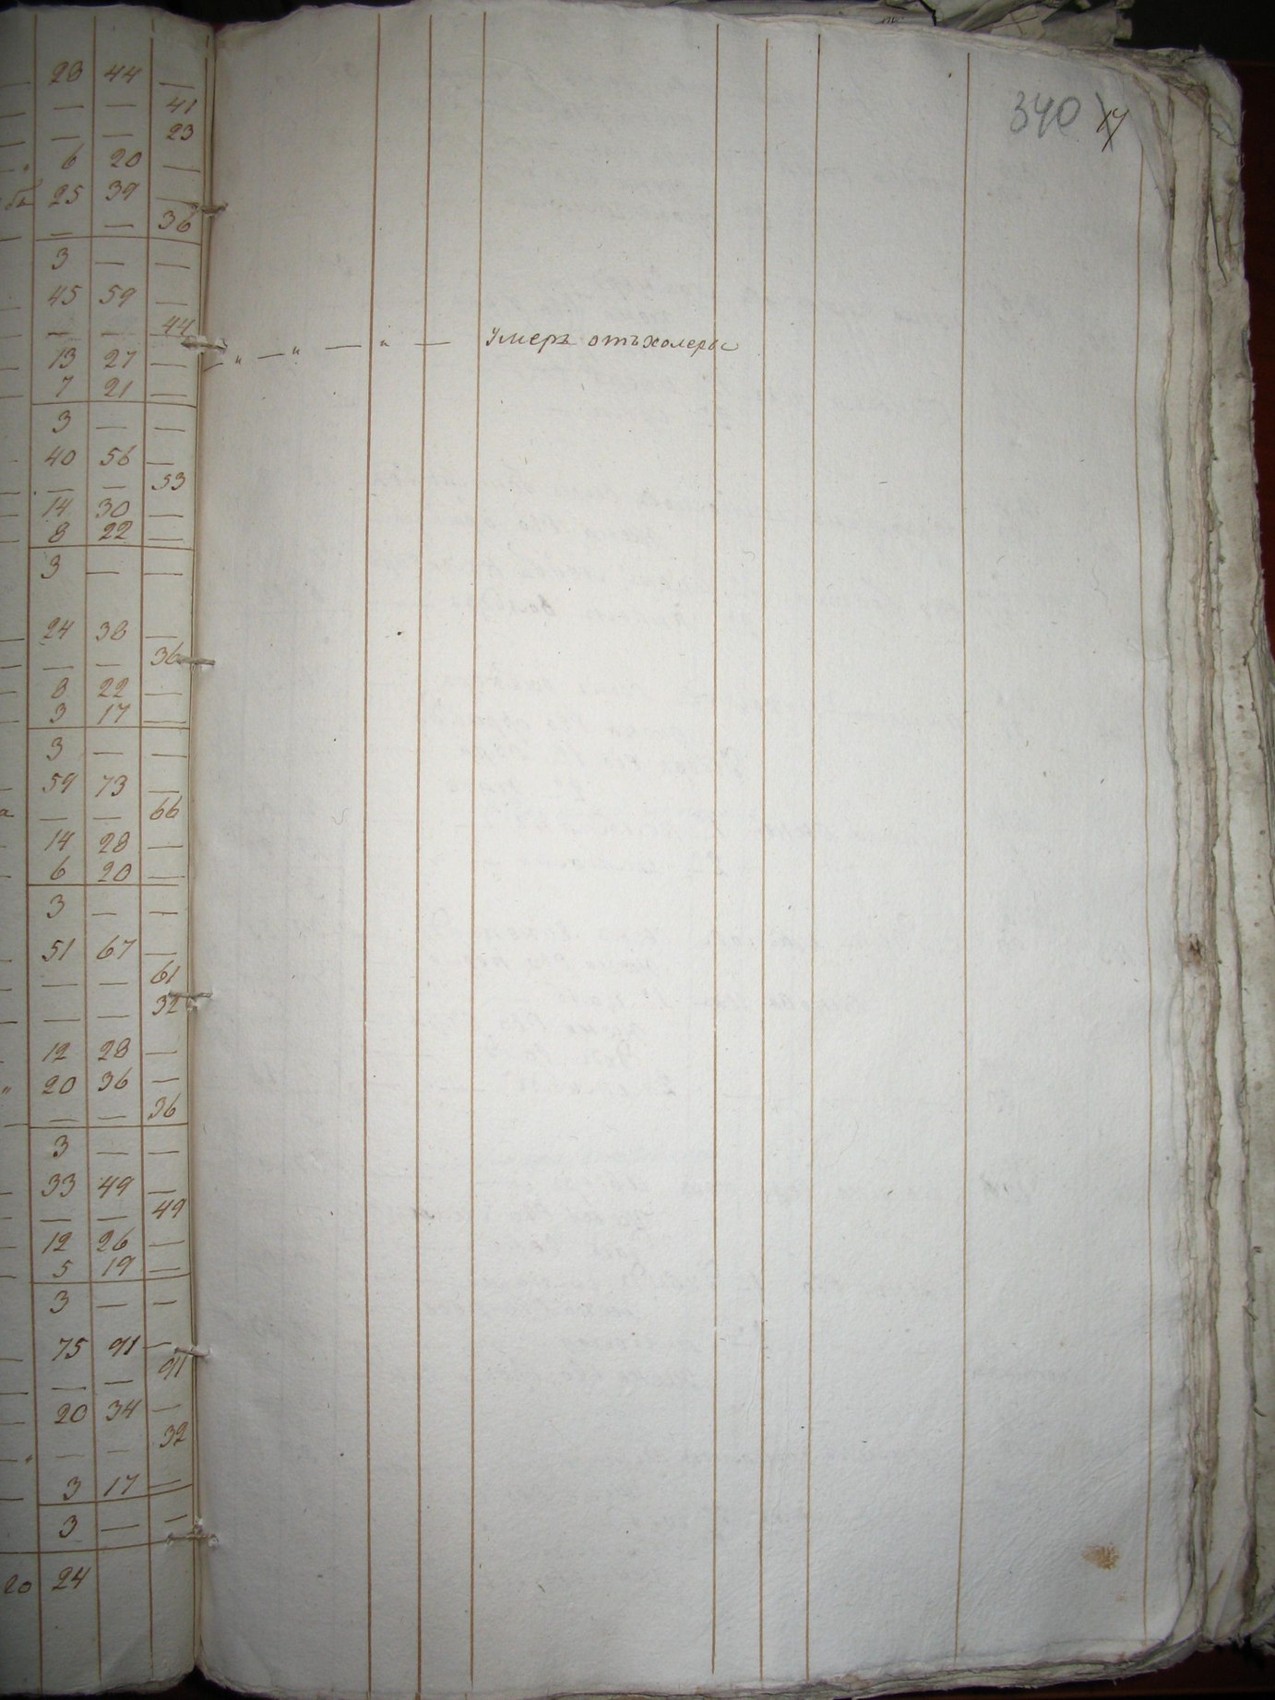 23 44 —
— — 41
— — 23
6 20 —
25 39 —
— — 36
3 — —
45 59 —
— — 44
13 27 —
7 21 —
3 — —
40 56 —
— — 53
14 30 —
8 22 —
3 — —
24 38 —
— — 36
8 22 —
3 17 —
3 — —
59 73 —
— — 66
14 28 —
6 20 —
3 — —
51 67 —
— — 61
— — 32
12 28 —
20 36 —
— — 36
3 — —
33 49 —
— — 49
12 26 —
5 19 —
3 — —
75 91 —
— — 91
20 34 —
— — 32
3 17 —
3 — —
20 24
340 17
„ — „ — „ — Умеръ отъ холеры